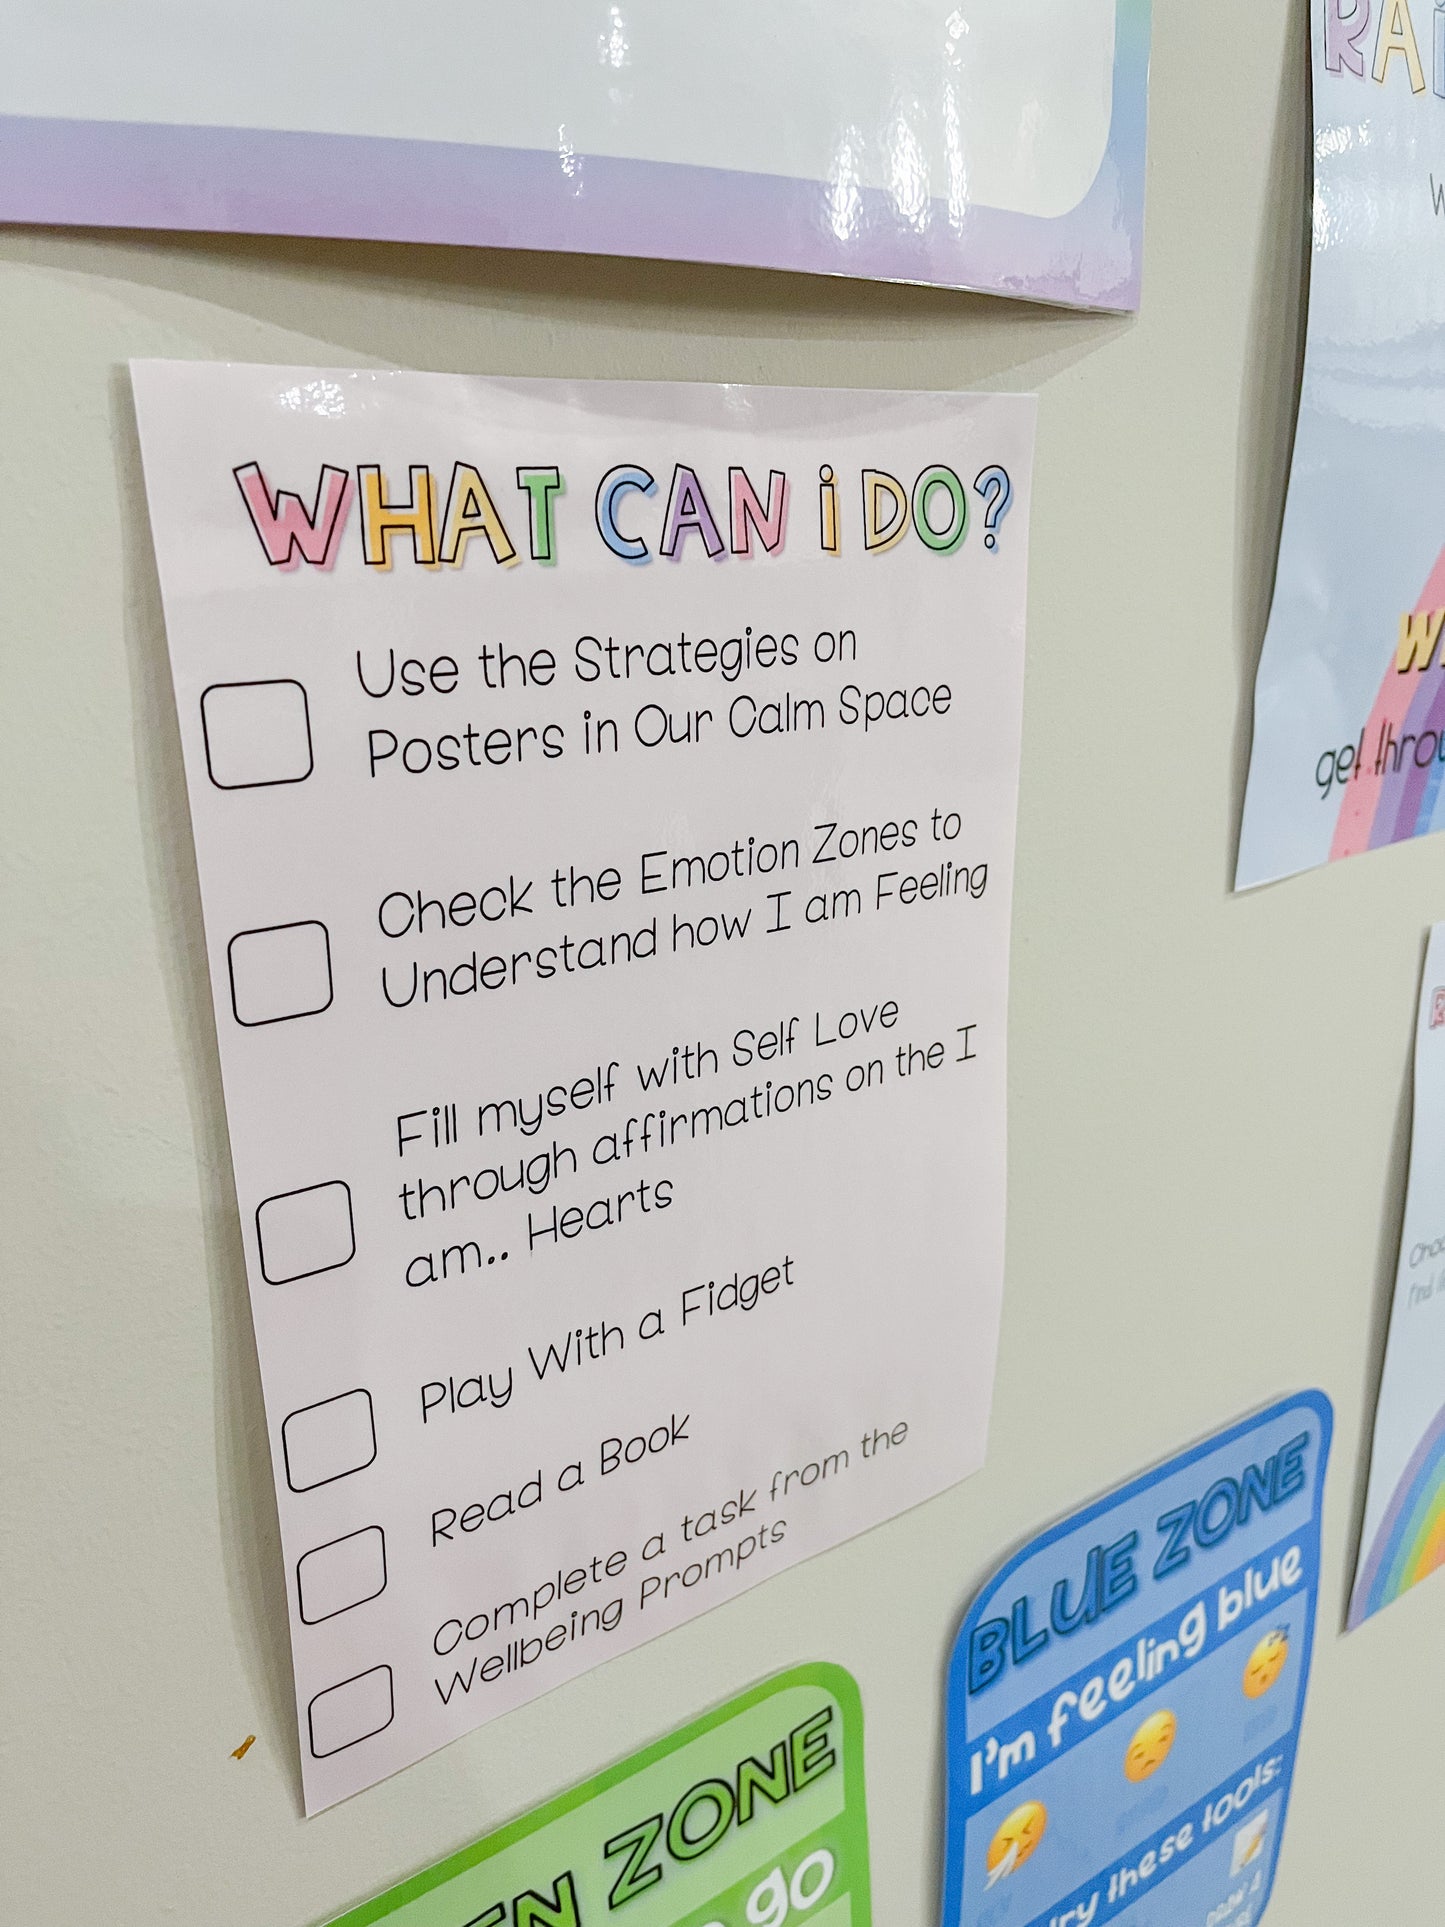 WHAT CAN i DO?
Use the Strategies on
Posters in Our Calm Space
Check the Emotion Zones to
Understand how I am Feeling
Fill myself with Self Love
through affirmations on the I
am.. Hearts
Play With a Fidget
Read a Book
Complete a task from the
Wellbeing Prompts
ZONE
go
BLUE ZONE
I'm feeling blue
these tools:
get